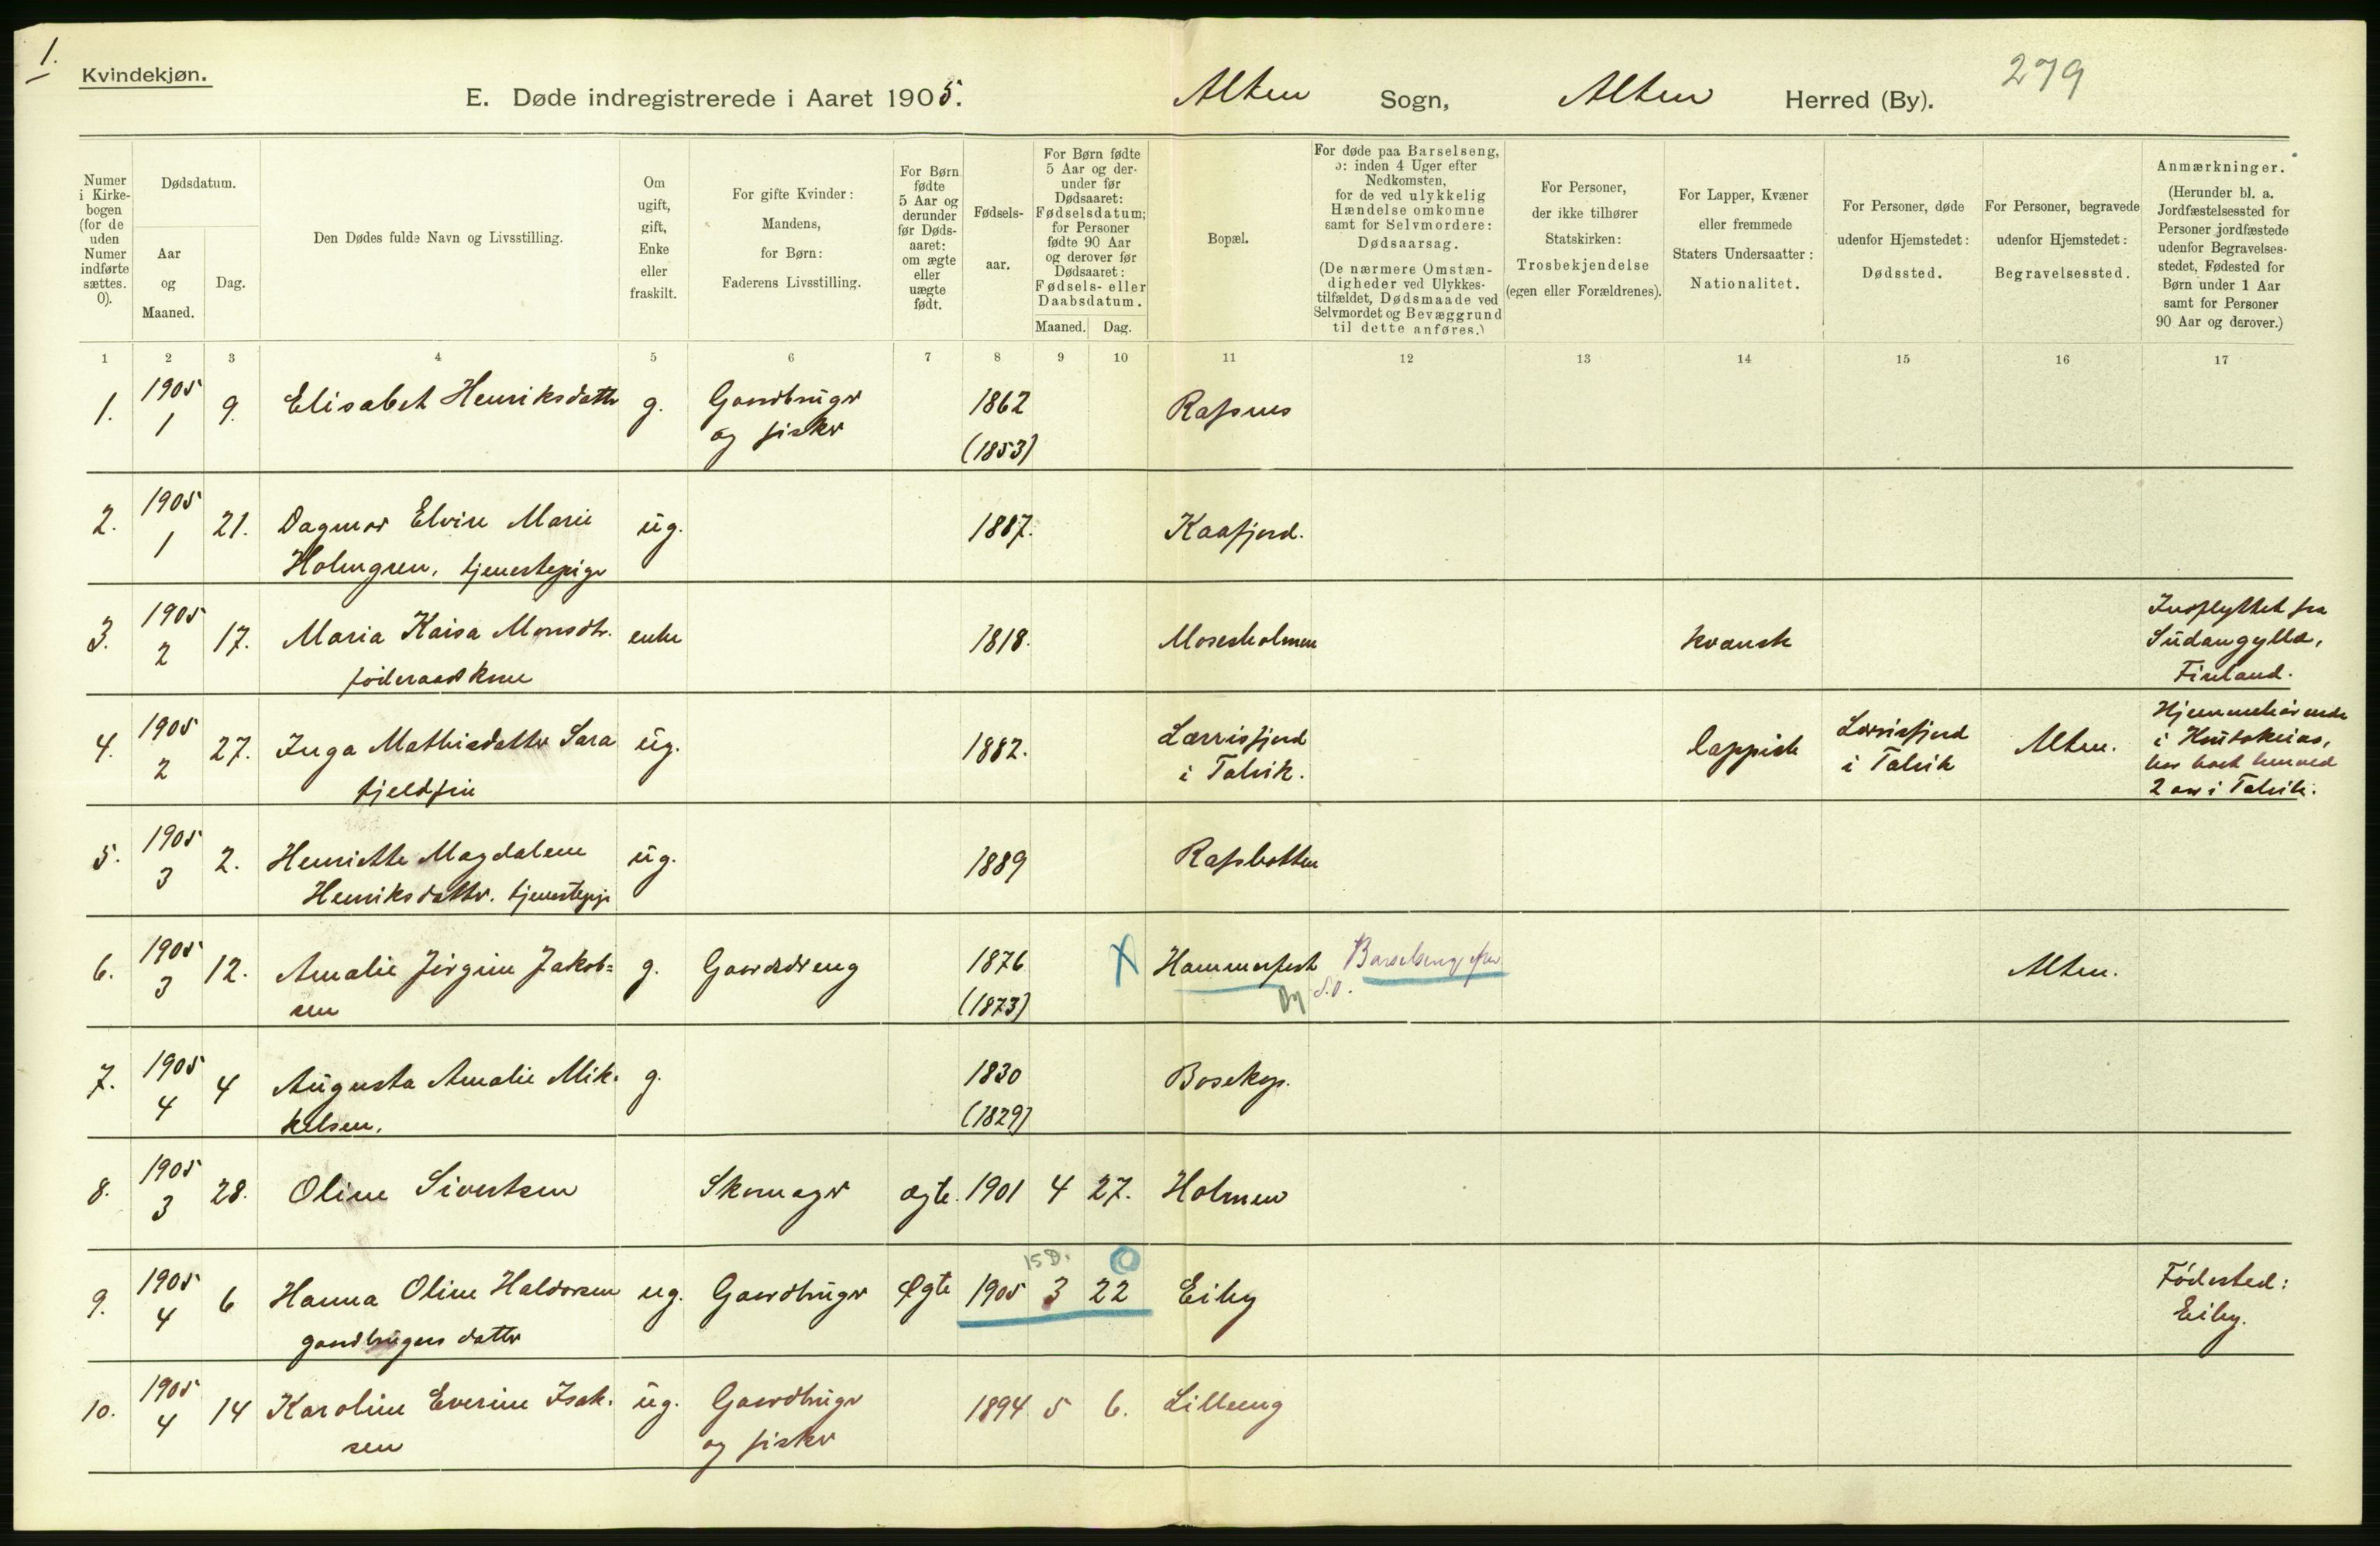 1.
Kvindekjøn.
E. Døde indregistrerede i Aaret 1905. Alten Sogn, Alten Herred (By). 279
Numer
i Kirke-
bogen
(for de
uden
Numer
indførte
sættes.
0).
Dødsdatum.
Aar
og
Maaned.
Dag.
Den Dødes fulde Navn og Livsstilling.
Om
ugift,
gift,
Enke
eller
fraskilt.
For gifte Kvinder:
Mandens,
for Børn:
Faderens Livsstilling.
For Børn
fødte
5 Aar og
derunder
før Døds-
aaret:
om ægte
eller
uægte
født.
Fødsels-
aar.
For Børn fødte
5 Aar og der-
under før
Dødsaaret:
Fødselsdatum;
for Personer
fødte 90 Aar
og derover før
Dødsaaret:
Fødsels- eller
Daabsdatum.
Maaned. Dag.
Bopæl.
For døde paa Barselseng,
ɔ: inden 4 Uger efter
Nedkomsten,
for de ved ulykkelig
Hændelse omkomne
samt for Selvmordere:
Dødsaarsag.
(De nærmere Omstæn-
digheder ved Ulykkes-
tilfældet, Dødsmaade ved
Selvmordet og Bevæggrund
til dette anføres.)
For Personer,
der ikke tilhører
Statskirken:
Trosbekjendelse
(egen eller Forældrenes).
For Lapper, Kvæner
eller fremmede
Staters Undersaatter:
Nationalitet.
For Personer, døde
udenfor Hjemstedet:
Dødssted.
For Personer, begravede
udenfor Hjemstedet:
Begravelsessted.
Anmærkninger.
(Herunder bl. a.
Jordfæstelsessted for
Personer jordfæstede
udenfor Begravelses-
stedet, Fødested for
Børn under 1 Aar
samt for Personer
90 Aar og derover.)
1 2 3 4 5 6 7 8 9 10 11 12 13 14 15 16 17
1. 1905 1 9. Elisabet Henriksdatter g. Gaardbruger 1862 Rafsnes
og fisker (1853)
2. 1905 1 21. Dagmar Elvine Marie ug. 1887. Kaafjord.
Holmgren. tjenestepige
3. 1905 2 17. Maria Kaisa Monsdtr. enke 1818. Mosesholmen kvænsk Indflyttet fra
føderaadskone
Finland.
4. 1905 2 27. Inga Mathisdatter Sara ug. 1882. Lærrisfjord lappisk Lerrisfjord Alten. Hjemmehørende
fjeldfin i Talvik. i Talvik i Kautokeino,
har boet henved
2 aar i Talvik.
5. 1905 3 2. Henriette Magdalene ug. 1889 Rafsbotten
Henriksdatter. tjenestepige
6. 1905 3 12. Amalie Jørgine Jakob= g. Gaardsdreng 1876 X Hammerfest Barselseng Alten.
sen (1873) By
7. 1905 4 4 Augusta Amalie Mik- g. 1830 Bosekop.
kelsen. (1829)
8. 1905 3 28. Oline Sivertsen Skomager ægte. 1901 4 27. Holmen
15 D.
9. 1905 4 6 Hanna Oline Haldorsen ug. Gaardbruger Ægte 1905 3 22 Eiby Fødested:
gaardbrugers datter Eiby.
10. 1905 4 14 Karoline Everine Isak- ug. Gaardbruger 1894 5 6. Lilleeng
sen og fisker